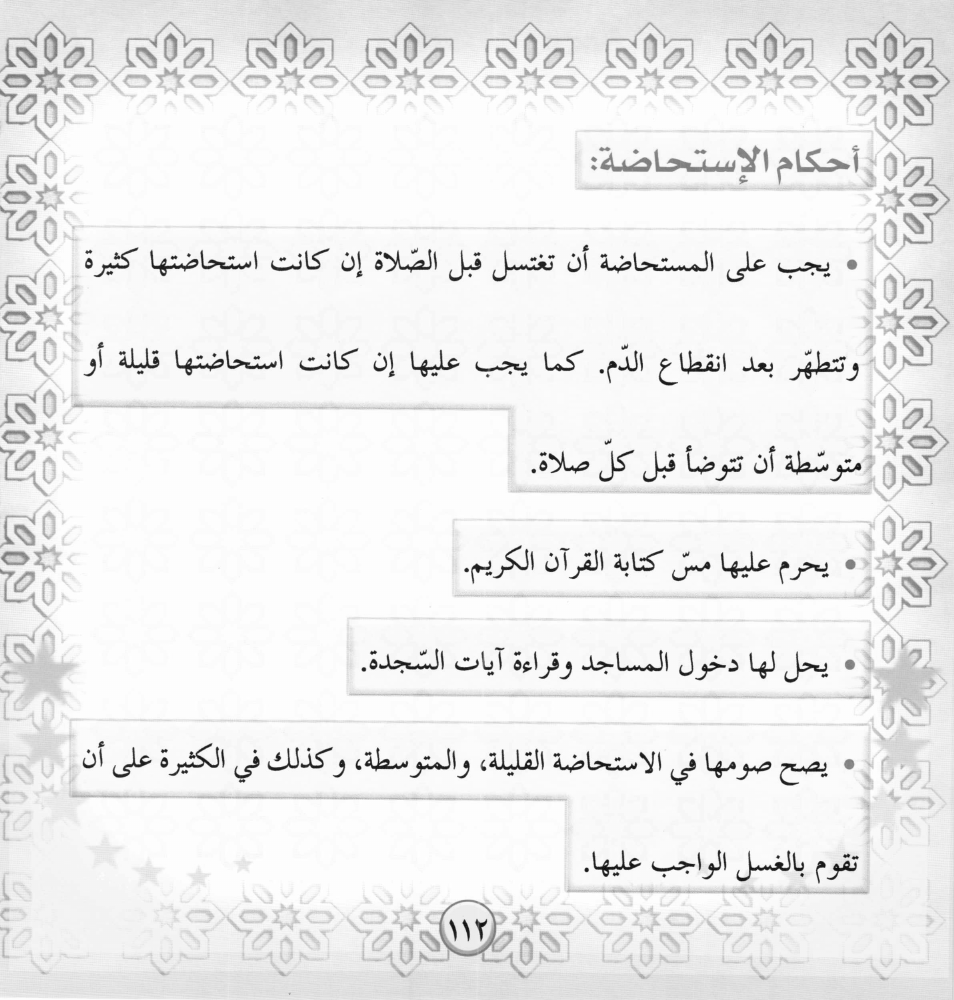 أحكام الإستحاضة:
• يجب على المستحاضة أن تغتسل قبل الصّلاة إن كانت استحاضتها كثيرة
وتتطهّر بعد انقطاع الدّم. كما يجب عليها إن كانت استحاضتها قليلة أو
متوسّطة أن تتوضأ قبل كلّ صلاة.
• يحرم عليها مسّ كتابة القرآن الكريم.
• يحل لها دخول المساجد وقراءة آيات السّجدة.
• يصح صومها في الاستحاضة القليلة، والمتوسطة، وكذلك في الكثيرة على أن
تقوم بالغسل الواجب عليها.
١١٢